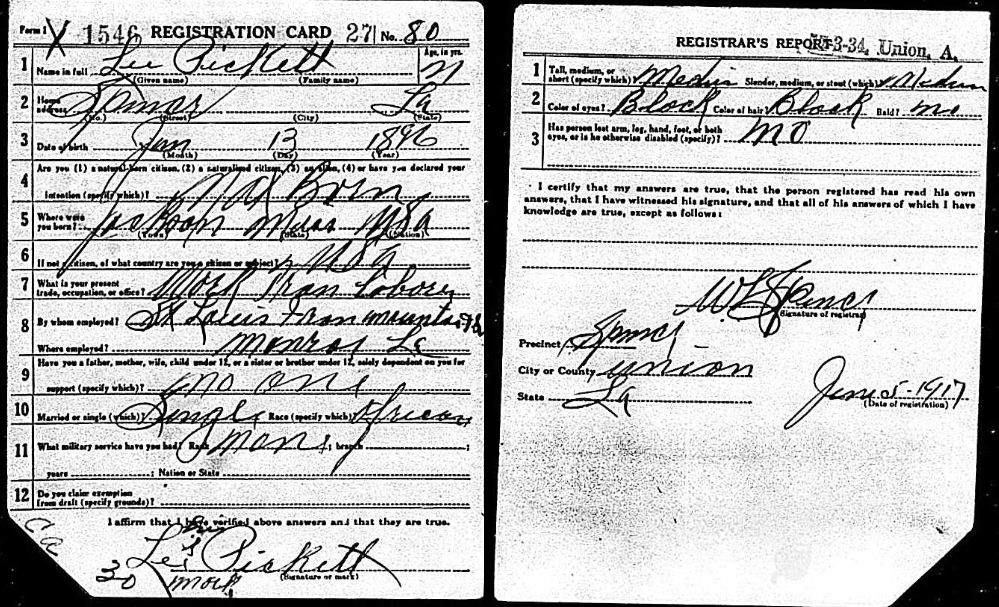 Form 1 X 1546 REGISTRATION CARD 27 No. 80
1 Name in full Lee Pickett Age, in yrs. 21
(Given name) (Family name)
2 Home address Spencer La
(No.) (Street) (City) (State)
3 Date of birth Jan 13 1896
(Month) (Day) (Year)
Are you (1) a natural-born citizen, (2) a naturalized citizen, (3) an alien, (4) or have you declared your
4 intention (specify which)? Nat Born
5 Where were you born? Jackson Miss USA
(Town) (State) (Nation)
6 If not a citizen, of what country are you a citizen or subject? USA
7 What is your present trade, occupation, or office? Work Train Laborer
8 By whom employed? St Louis Iron mountain
Where employed? Monroe La
9 Have you a father, mother, wife, child under 12, or a sister or brother under 12, solely dependent on you for
support (specify which)? no one
10 Married or single (which)? Single Race (specify which)? African
11 What military service have you had? Rank none ; branch ;
years ; Nation or State
12 Do you claim exemption from draft (specify grounds)?
I affirm that I have verified above answers and that they are true.
his
Lee x Pickett
(Signature or mark)
30 mark
REGISTRAR'S REPORT 3-34, Union, A.
1 Tall, medium, or short (specify which)? Medium Slender, medium, or stout (which)? Medium
2 Color of eyes? Black Color of hair? Black Bald? no
3 Has person lost arm, leg, hand, foot, or both eyes, or is he otherwise disabled (specify)? no
I certify that my answers are true, that the person registered has read his own
answers, that I have witnessed his signature, and that all of his answers of which I have
knowledge are true, except as follows:
(Signature of registrar)
Precinct Spencer
City or County Union
State La
June 5-1917
(Date of registration)